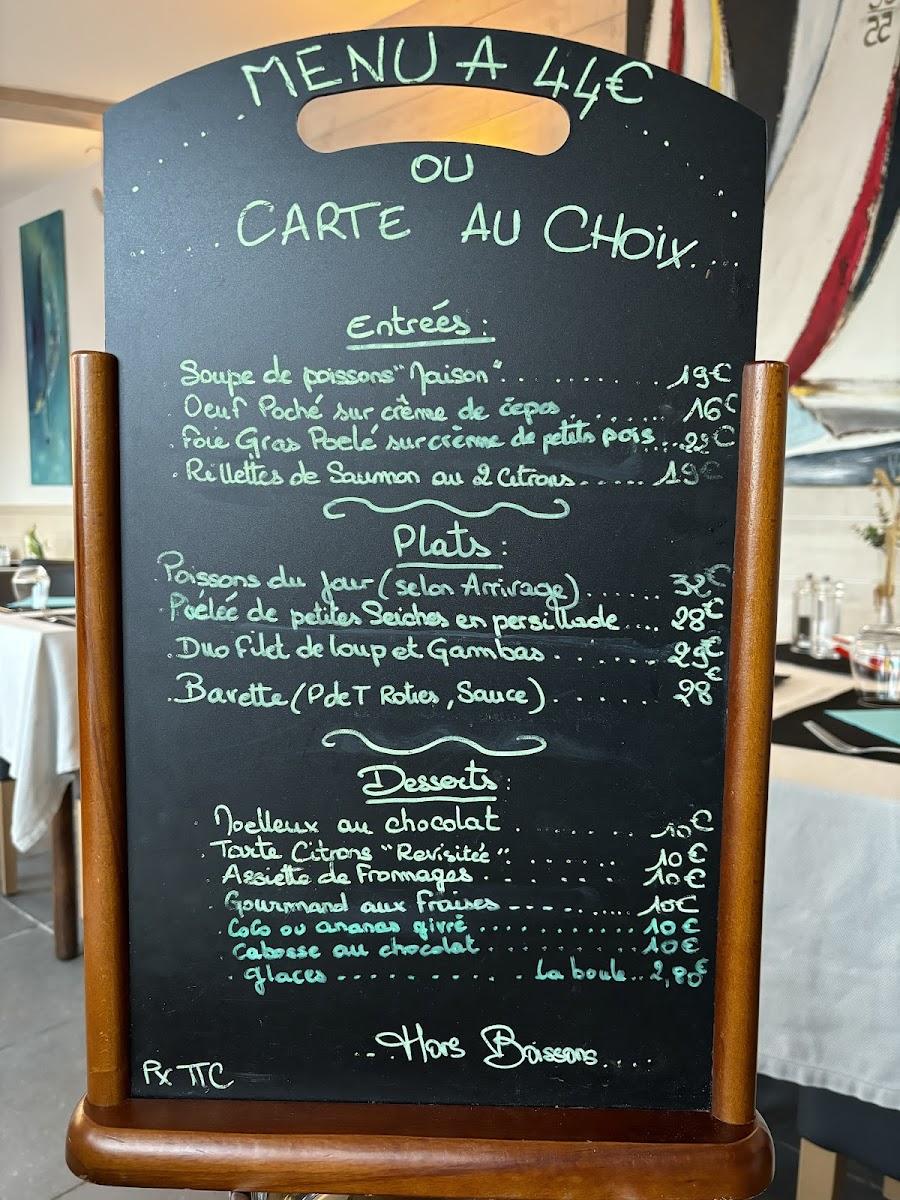 MENU A 44€
OU
CARTE AU CHOIX....
Entreés :
Soupe de poissons "Maison"........... 19€
Oeuf Poché sur crème de cèpes........ 16€
Foie Gras Poelé sur crème de petits pois....
Rillettes de Saumon au 2 Citrons...... 19€
Plats :
Poissons du jour (selon Arrivage)...... 32€
Poélée de petites Seiches en persillade.... 28€
Duo filet de loup et Gambas....... 29€
Bavette (P de T Roties, Sauce)....... 28€
Desserts :
Moelleux au chocolat........ 10€
Tarte Citrons "Revisitée"....... 10€
Assiette de Fromages....... 10€
Gourmand aux fraises ---...... 10€
Coco ou ananas givré.......... 10€
Cabosse au chocolat.......... 10€
glaces........... La boule... 2,80€
...Hors Boissons....
Px TTC